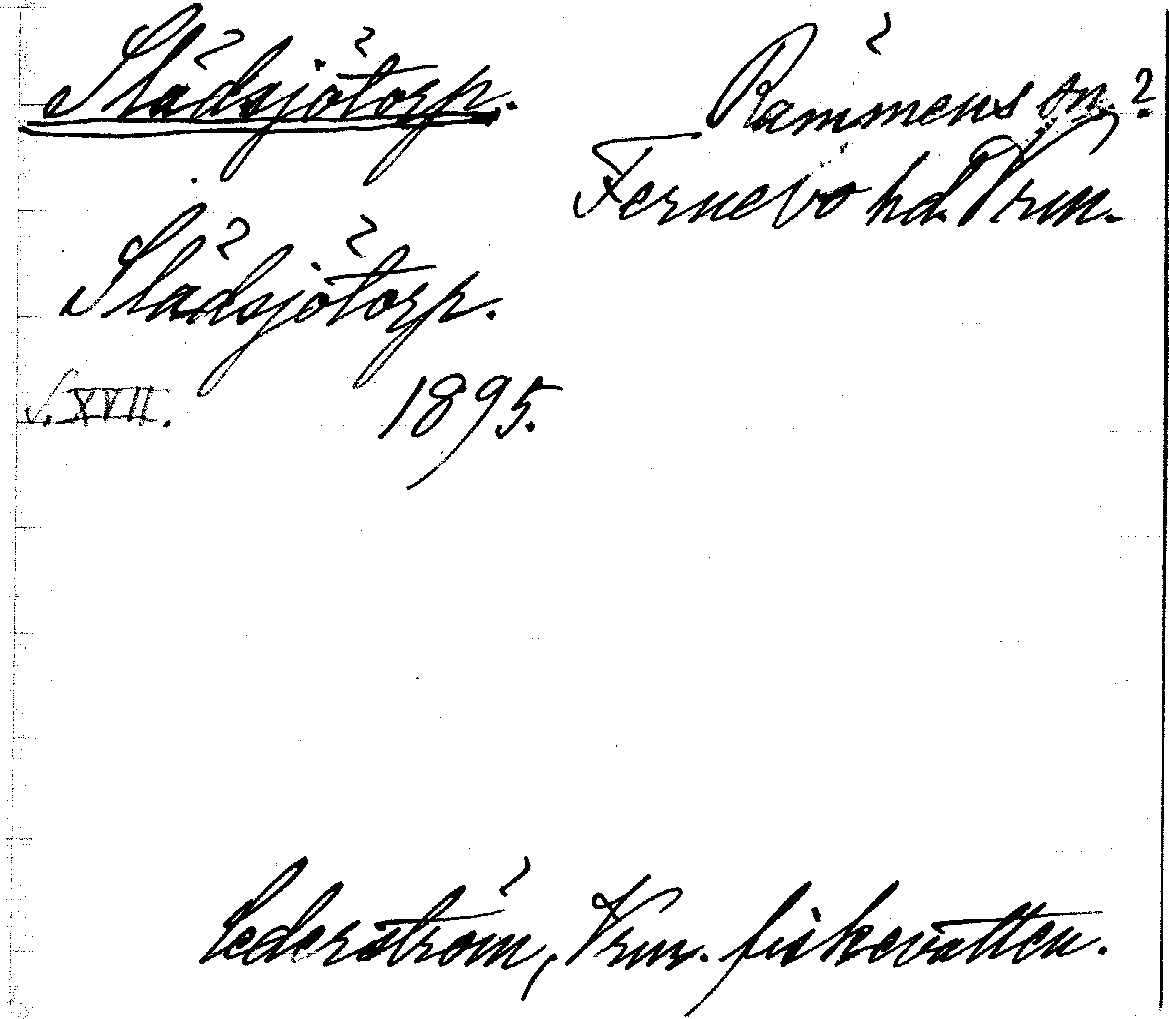 Slädsjötorp.
Rämmens sn.?
Fernebo hd. Vrm.
Slädsjötorp.
S. XVII. 1895.
Cederström, Vrm. fiskevatten.